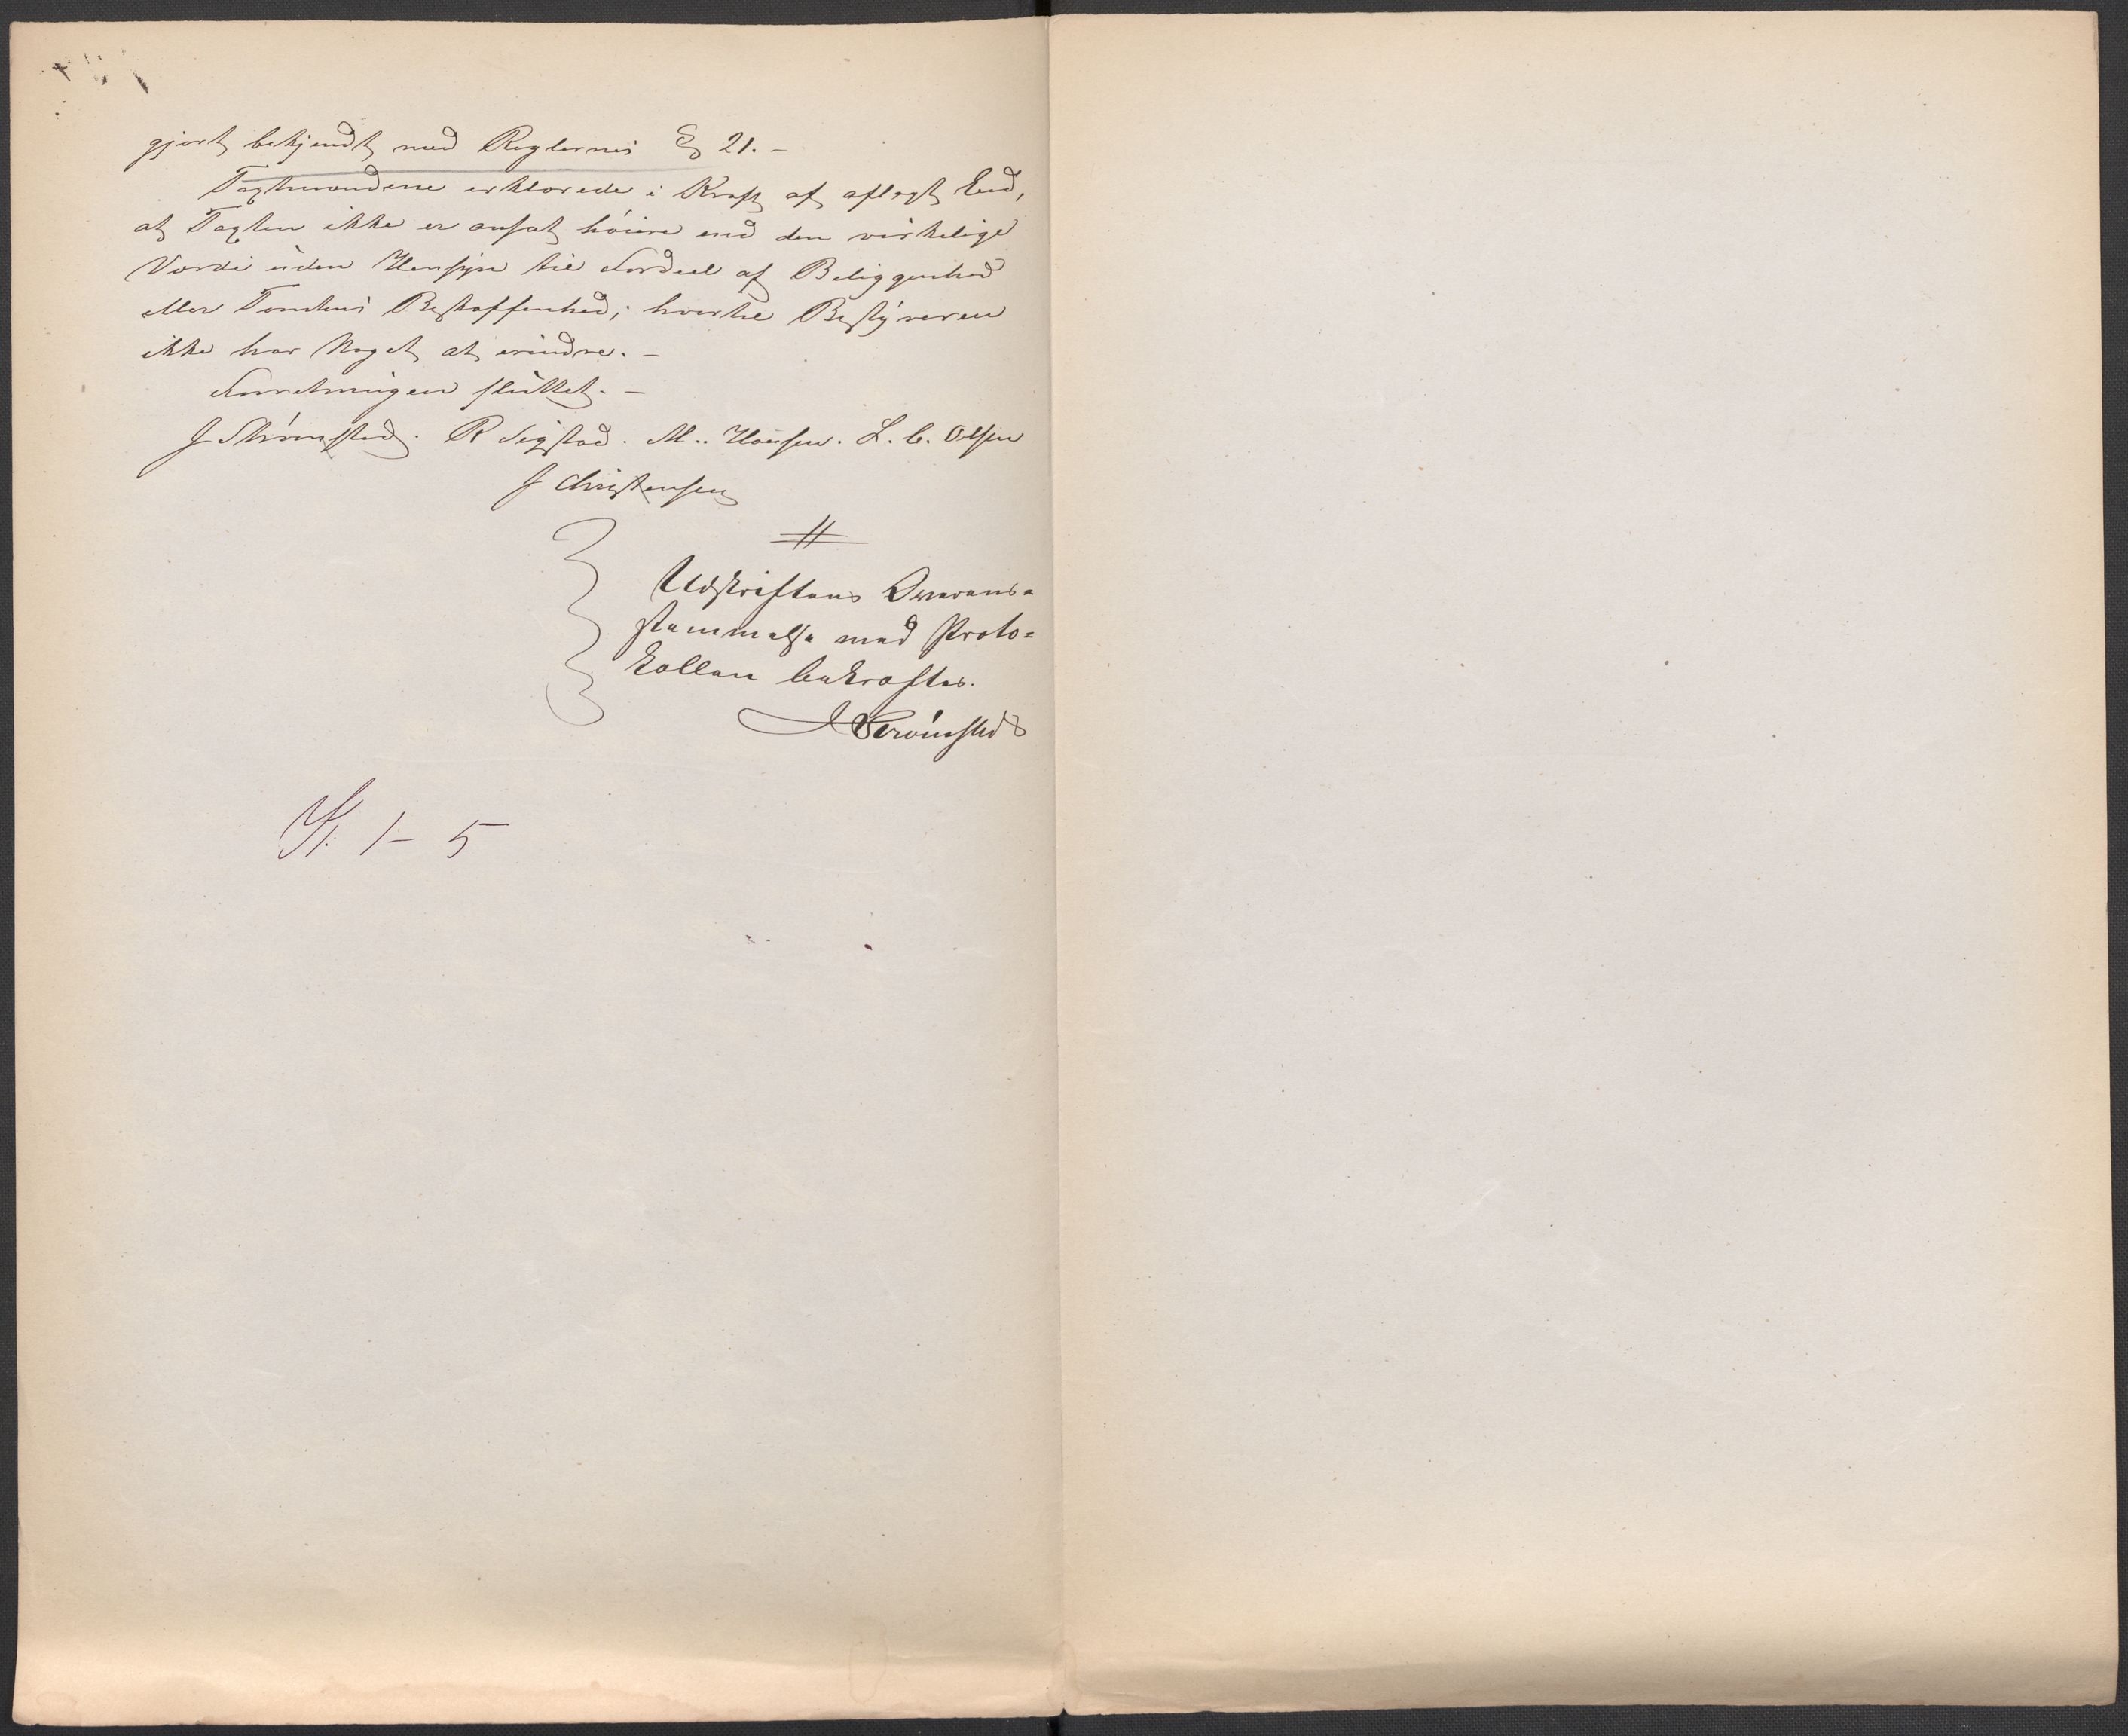 gjort bekjendt med Reglernes § 21. –
Taxtmændene erklærede i Kraft af aflagt Eed,
at Taxten ikke er ansat høiere end den virkelige
Værdi uden Hensyn til Fordeel af Beliggenhed
eller Tomtens Beskaffenhed; hvortil Bestyreren
ikke har Noget at erindre. –
Forretningen sluttet. –
J Strømsted. R Sigstad. M.. Hansen. L. C. Olsen
J Christensen
Udskriftens Overens=
stemmelse med Proto=
kollen bekræftes.
J Strømsted
1 – 5